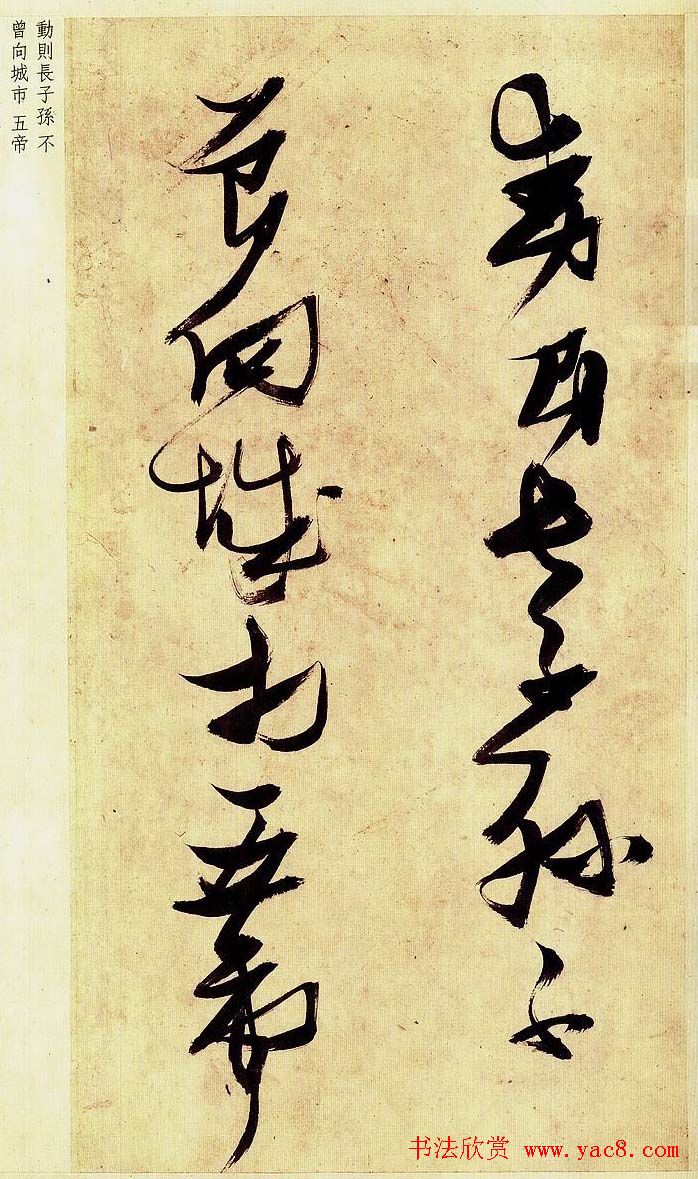 動則長子孫不
曾向城市五帝
動則長子孫 不
曾向城市 五帝
书法欣赏 www.yac8.com